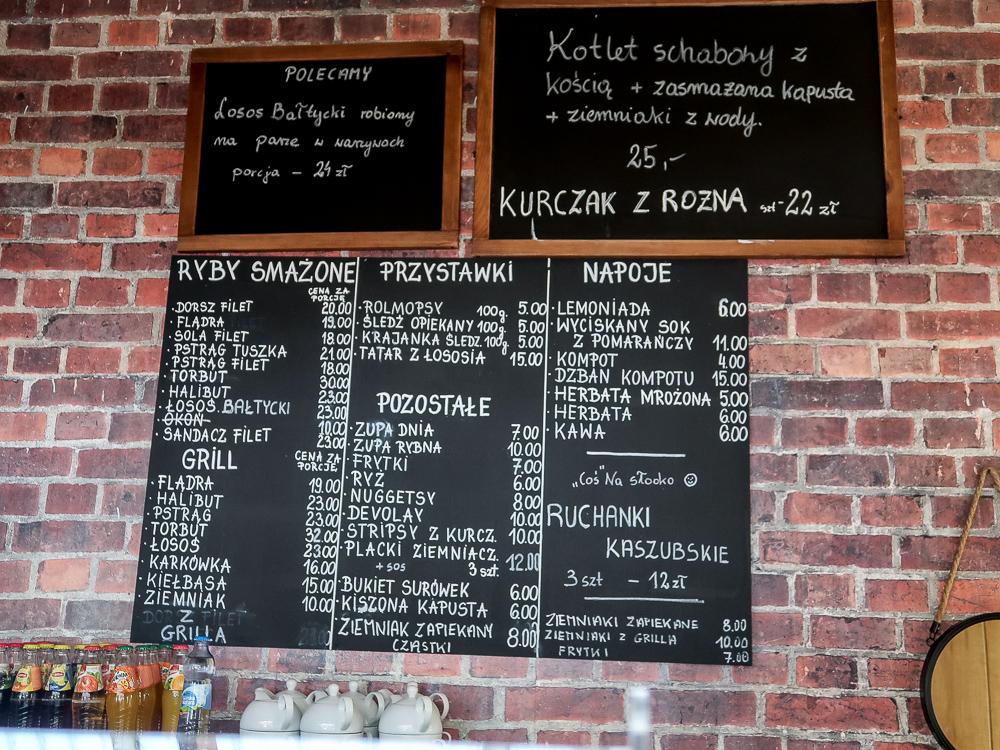 POLECAMY
Łosoś Bałtycki robiony
na parze w warzywach
porcja - 24 zł
Kotlet schabowy z
kością + zasmażana kapusta
+ ziemniaki z wody.
25,-
KURCZAK Z ROZNA szt-22 zł
RYBY SMAŻONE
CENA ZA
PORCJE
DORSZ FILET 20.00
FLĄDRA 19.00
SOLA FILET 18.00
PSTRĄG TUSZKA 21.00
PSTRĄG FILET 18.00
TORBUT 30.00
HALIBUT 23.00
ŁOSOŚ BAŁTYCKI 23.00
OKOŃ 10.00
SANDACZ FILET 23.00
GRILL
CENA ZA
PORCJE
FLĄDRA 19.00
HALIBUT 23.00
PSTRĄG 23.00
TORBUT 32.00
ŁOSOŚ 23.00
KARKÓWKA 16.00
KIEŁBASA 15.00
ZIEMNIAK 10.00
Z
GRILLA
PRZYSTAWKI
ROLMOPSY 100g. 5.00
ŚLEDŹ OPIEKANY 100g. 5.00
KRAJANKA ŚLEDZ. 100g. 5.00
TATAR Z ŁOSOSIA 15.00
POZOSTAŁE
ZUPA DNIA 7.00
ZUPA RYBNA 10.00
FRYTKI 7.00
RYŻ 6.00
NUGGETSY 8.00
DEVOLAY 10.00
STRIPSY Z KURCZ. 10.00
PLACKI ZIEMNIACZ.
+ SOS 3 szt. 12.00
BUKIET SURÓWEK 6.00
KISZONA KAPUSTA 6.00
ZIEMNIAK ZAPIEKANY 8.00
CZĄSTKI
NAPOJE
LEMONIADA 6.00
WYCISKANY SOK
Z POMARAŃCZY 11.00
KOMPOT 4.00
DZBAN KOMPOTU 15.00
HERBATA MROŻONA 5.00
HERBATA 6.00
KAWA 6.00
„Coś Na słodko ☺
RUCHANKI
KASZUBSKIE
3 szt - 12 zł
ZIEMNIAKI ZAPIEKANE 8.00
ZIEMNIAKI Z GRILLA 10.00
FRYTKI 7.00